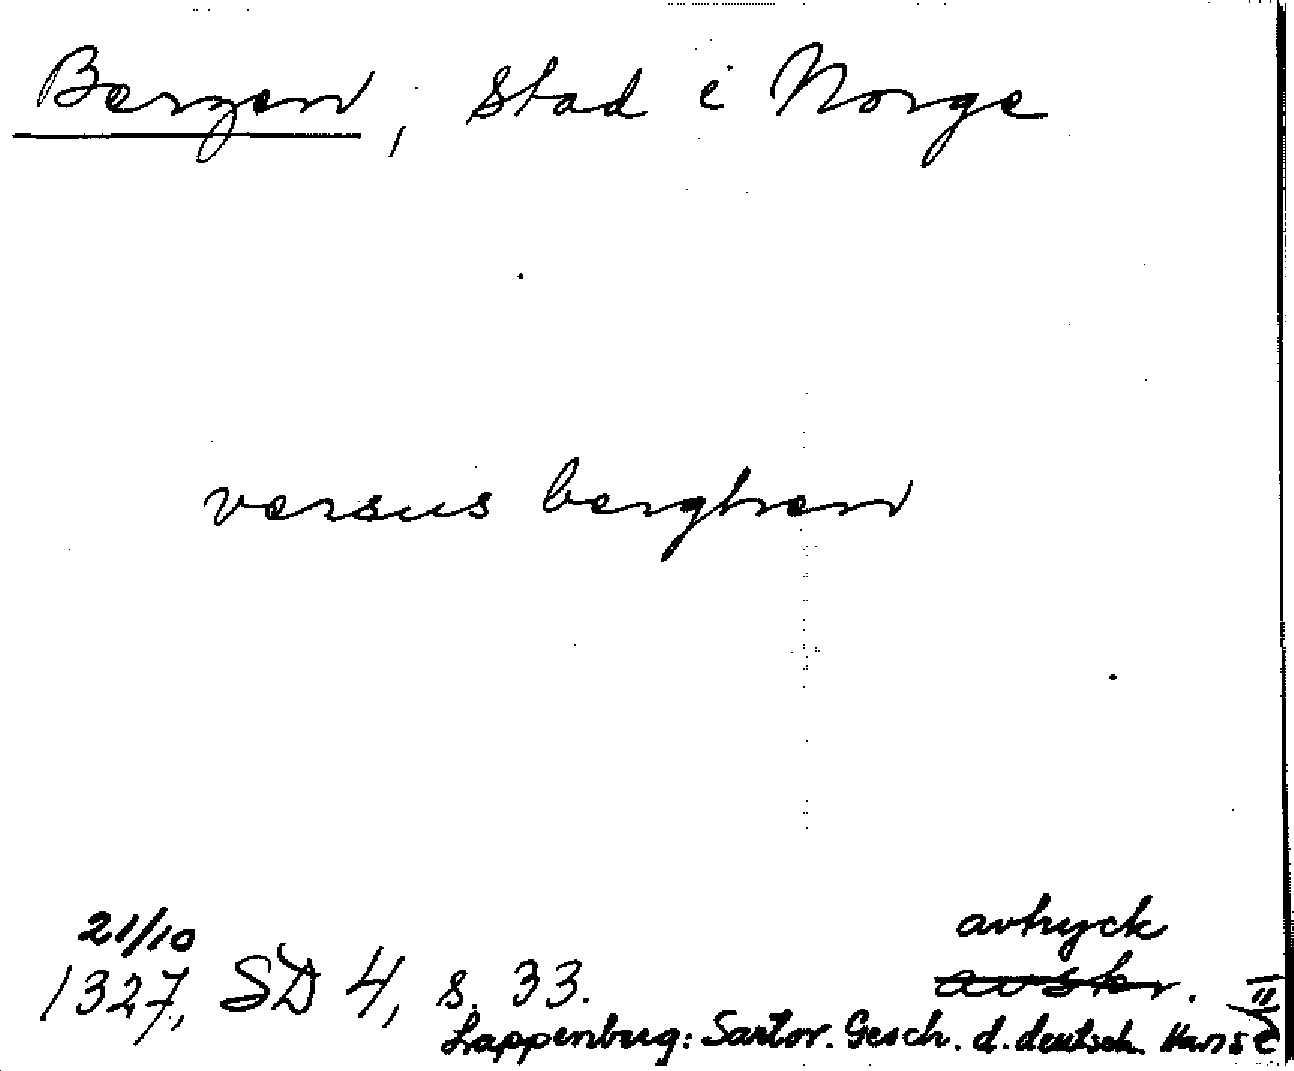 Bergen, Stad i Norge
versus berghen
21/10
1327, SD 4, s. 33.
avtryck
avskr.
Lappenburg: Sartor. Gesch. d. deutsch. Hanse II